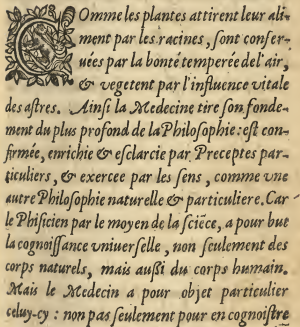 COmme les plantes attirent leur ali-
ment par les racines, sont conser-
uées par la bonté temperée de l'air,
& vegetent par l'influence vitale
des astres. Ainsi la Medecine tire son fonde-
ment du plus profond de la Philosophie: est con-
firmée, enrichie & esclarcie par Preceptes par-
ticuliers, & exercee par les sens, comme vne
autre Philosophie naturelle & particuliere. Car
le Phisicien par le moyen de la sciẽce, a pour but
la cognoissance vniuerselle, non seulement des
corps naturels, mais aussi du corps humain.
Mais le Medecin a pour objet particulier
celuy-cy: non pas seulement pour en cognoistre